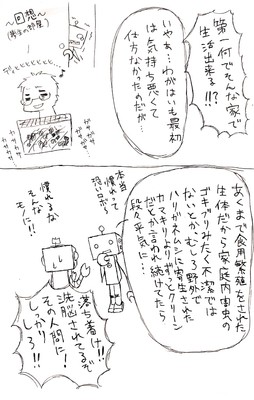 第一何でそんな家で
生活出来る!!?
いやぁ…わがはいも最初
は気持ち悪くて
仕方なかったのだが…
〜回想〜
カサカサ
カサカサ
あくまで食用繁殖をされた
生体だから家庭内害虫の
ゴキブリみたく不潔では
ないとか、むしろ野外で
ハリガネムシに寄生された
カマキリよりずっとクリーン
だとか言われ続けてたら
段々平気に…
本当
慣れって
恐ろしい
慣れるな
そんな
モノに!!
落ち着け!!
洗脳されてるぞ
その人間に!
しっかりしろ!!